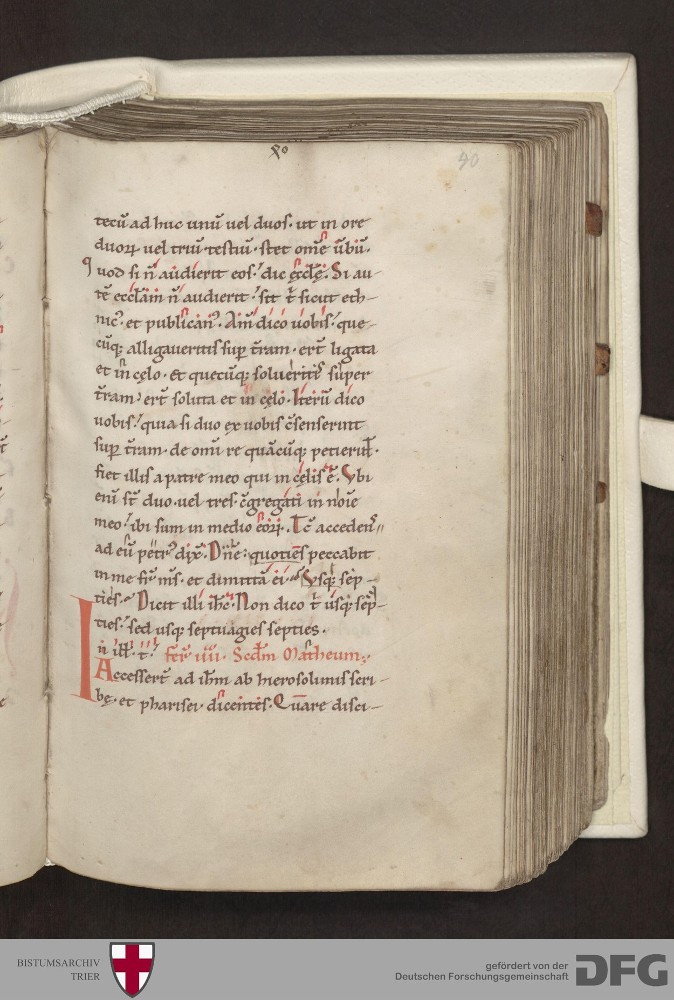 xo
40
tecū ad huc unū uel duos. ut in ore
duoꝝ uel triū testiū stet om̄e ūbū.
quod si n̄ audierit eos. dic ęcclę. Si au-
tē eccłam n̄ audierit. sit t̄ sicut eth-
nic᷒ et publican᷒. Am̄ dico uobis. que-
cūq; alligaueritis sup̄ t̄ram. ert̄ ligata
et in cęlo. Et quecūq; solueritis super
t̄ram. ert̄ soluta et in cęlo. Iterū dico
uobis. quia si duo ex uobis c̄senserint
sup̄ t̄ram. de om̄i re quācūq; petierint.
fiet illis a patre meo qui in cęlis ē. Vbi
eni st̄ duo uel tres c̄gregati in noīe
meo. ibi sum in medio eoꝝ. Tc̄ acceden̄s
ad eū petr᷒ dix̄. Dn̄e quotiens peccabit
in me fr̄ m̄s. et dimittā ei. Vsq; sep-
ties. Dicit illi ih̄c. Non dico t̄ usq; sep-
ties. sed usq; septuagies septies.
In ill̄. t̄. fer̄ iiii. Scd̄m Matheum.
Accessert̄ ad ih̄m ab hierosolimis scri-
bę. et pharisei dicentes. Quare disci-
BISTUMSARCHIV
TRIER
gefördert von der
Deutschen Forschungsgemeinschaft
DFG